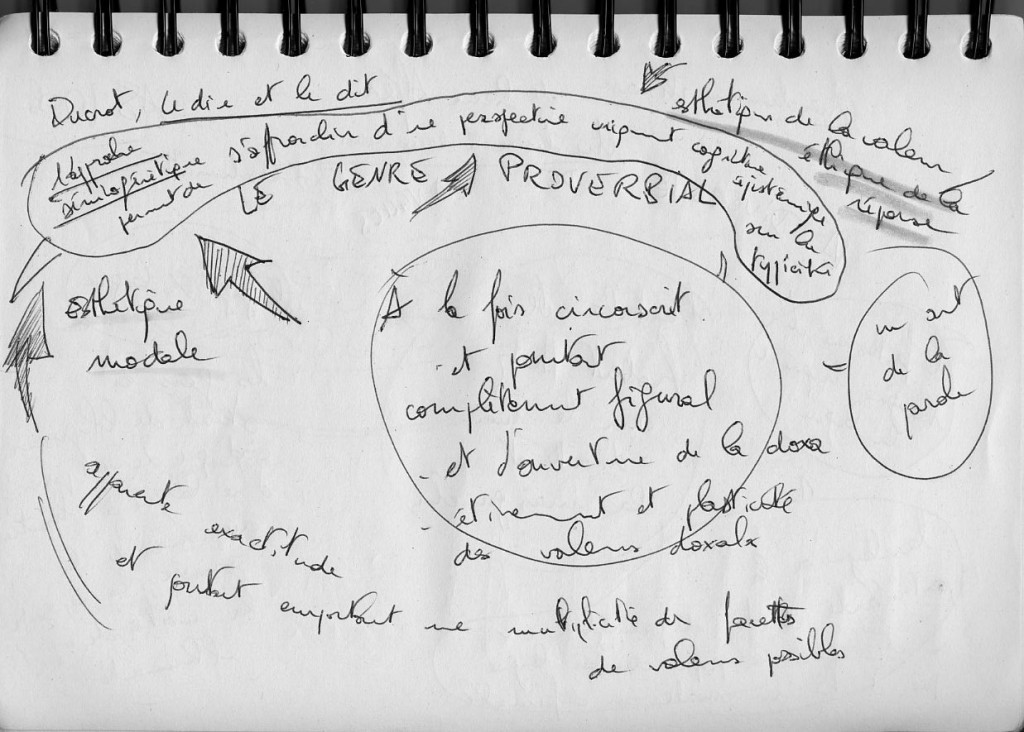 Ducrot, Le dire et le dit
L'approche
sémiogénétique
permet de
s'affranchir d'une perspective uniquement cognitive
épistémique
sur la
typicité
esthétique de la valeur
éthique de la
réponse
LE GENRE PROVERBIAL
esthétique
modale
A la fois circonscrit
- et pourtant
complètement figural
- et d'ouverture de la doxa
- étirement et plasticité
des valeurs doxales
- un art
de la
parole
apparente
exactitude
et pourtant emportant une multiplicité de facettes
de valeurs possibles